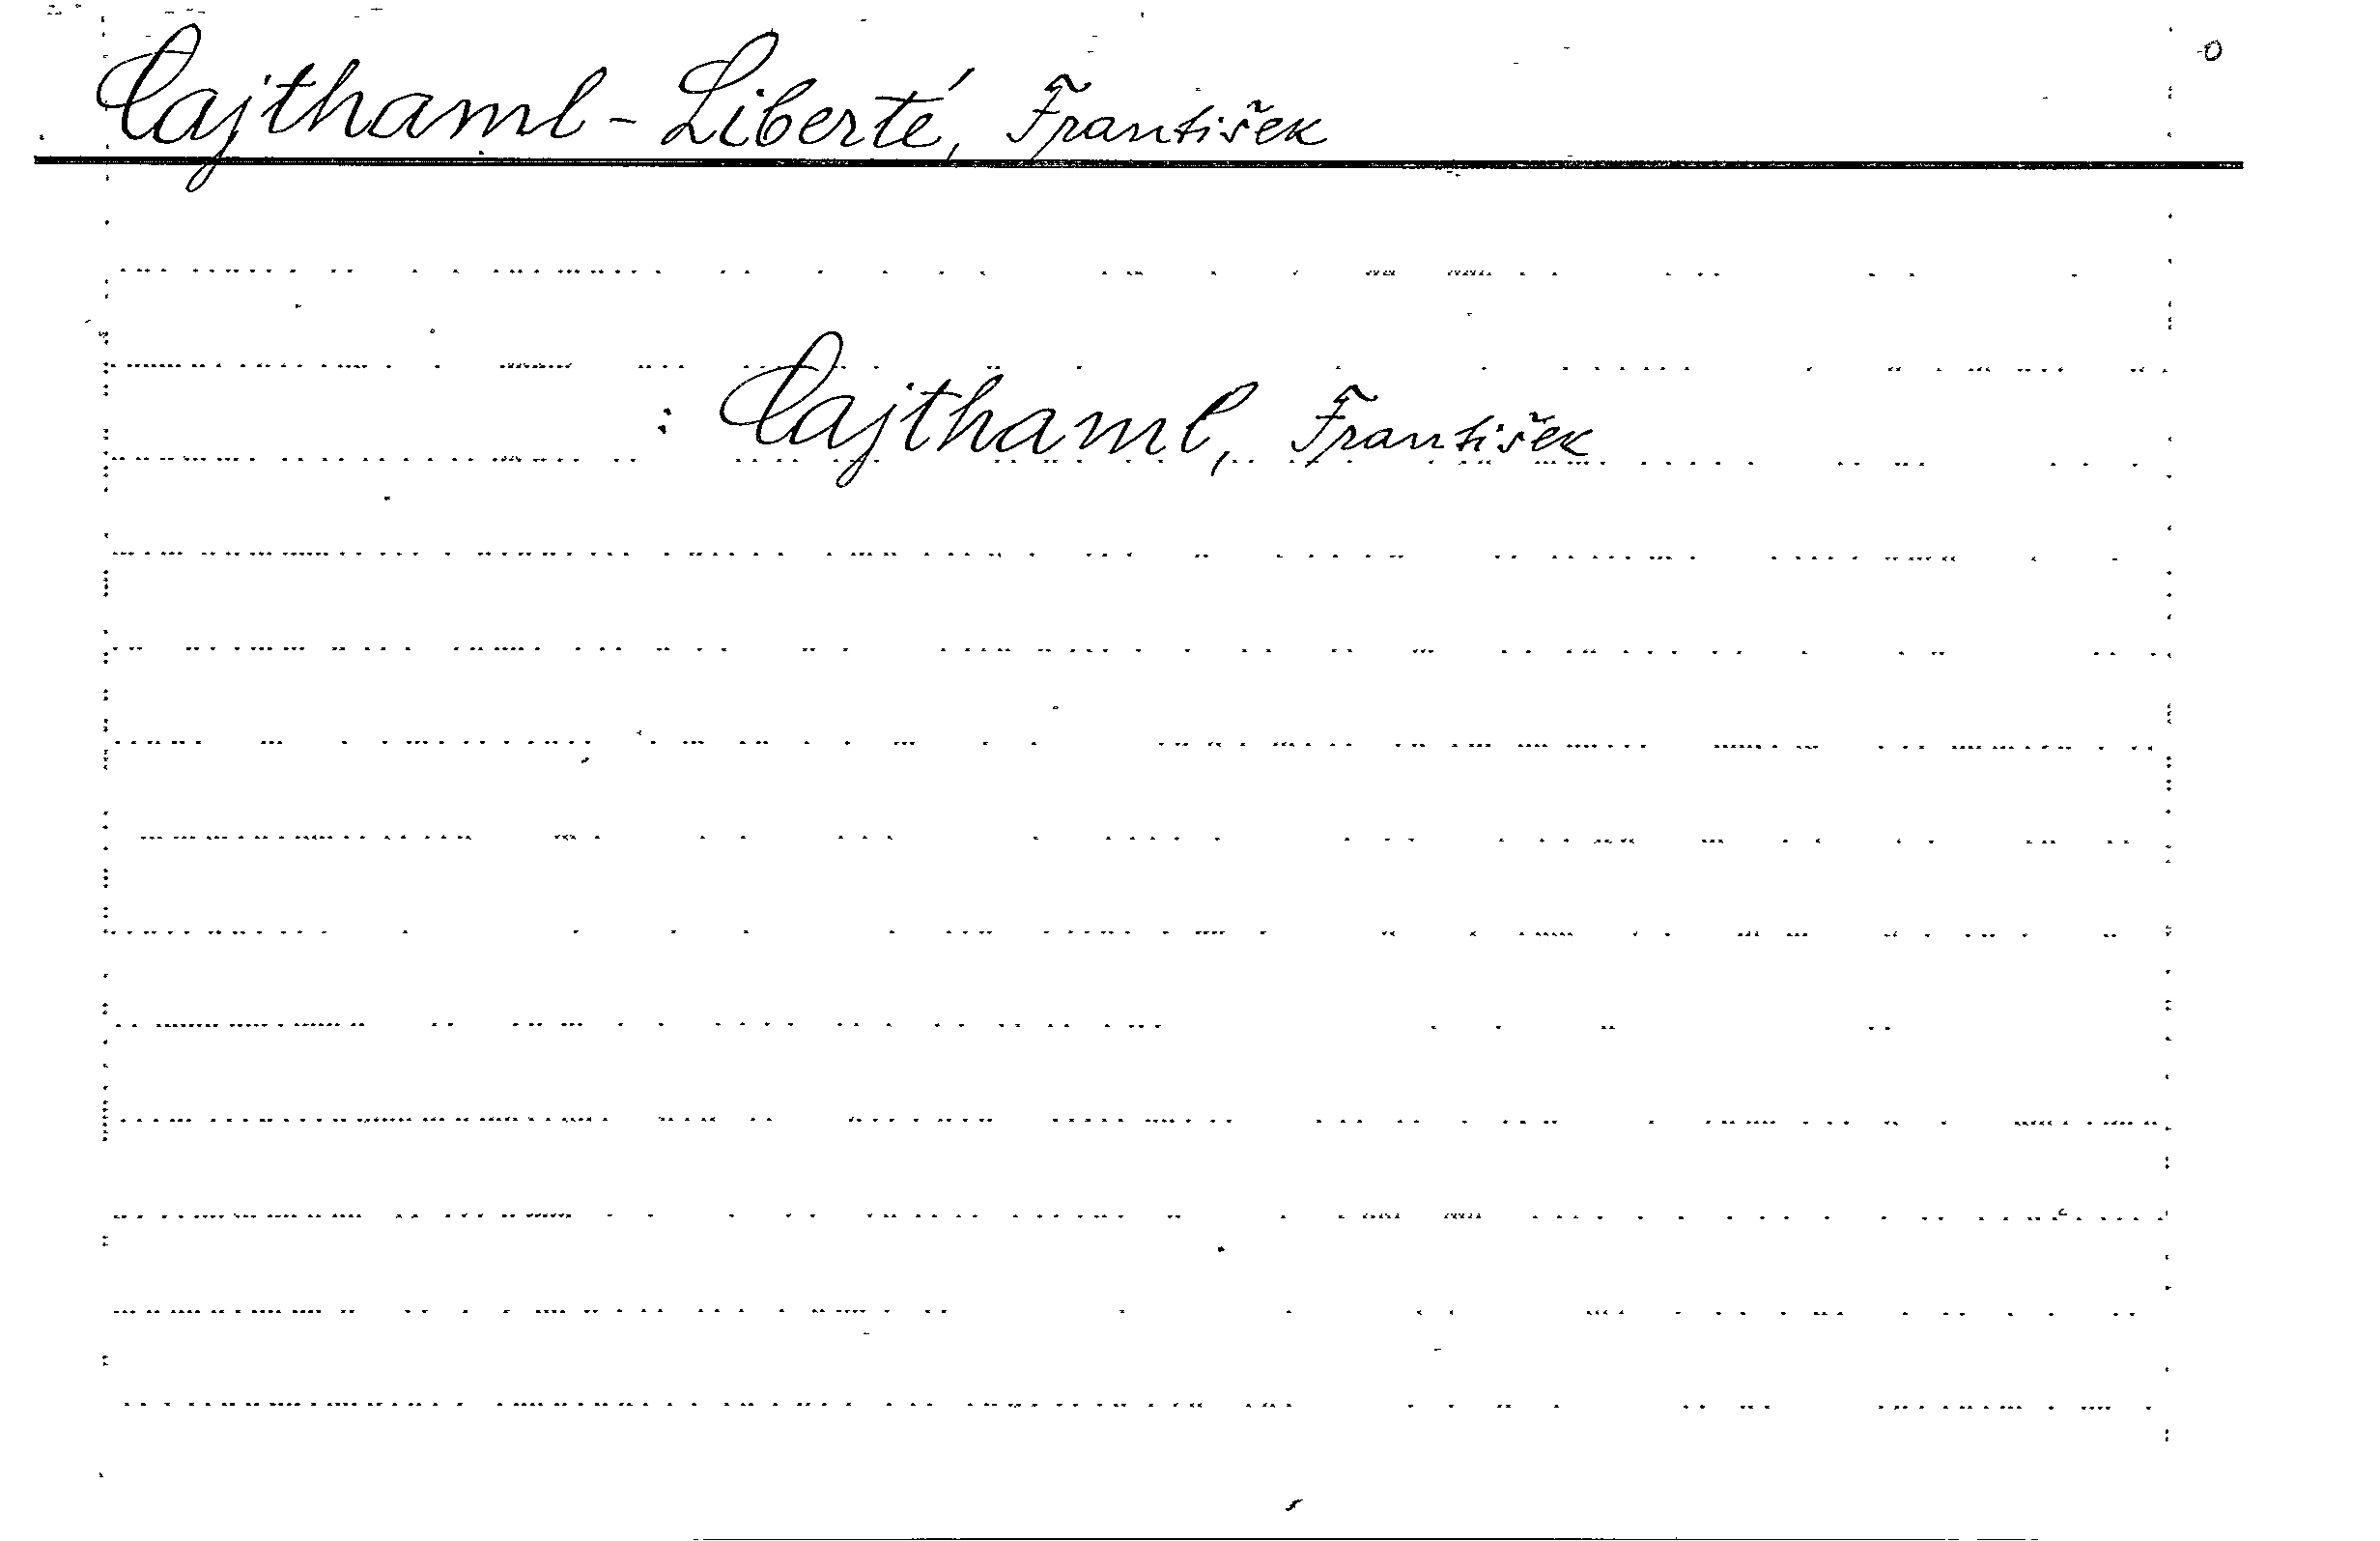 Cajthaml - Liberté, František
: Cajthaml, František